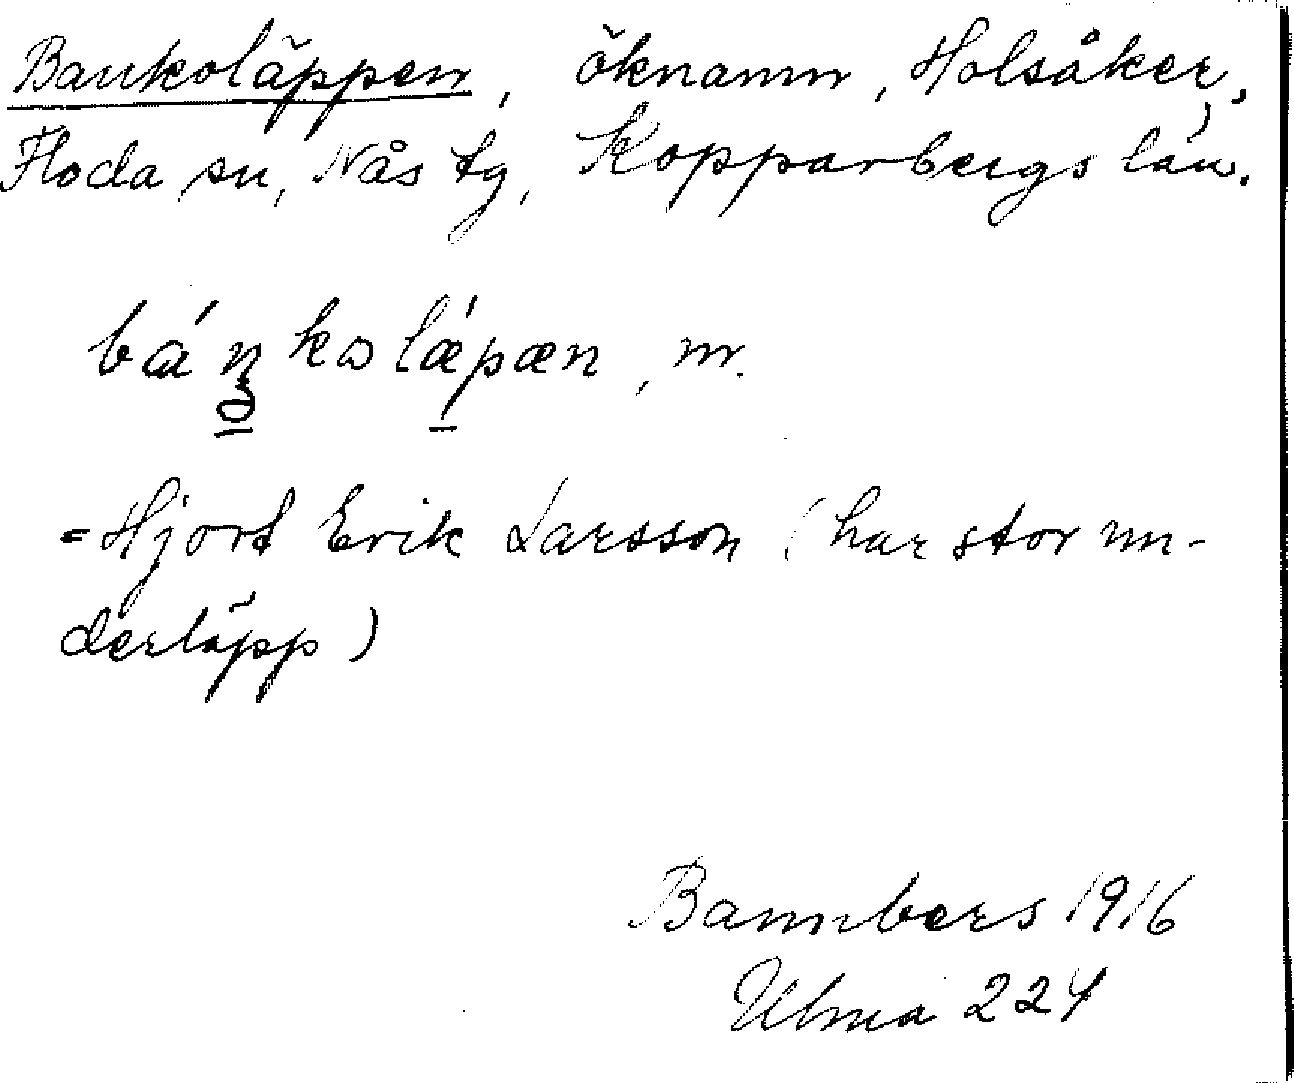 Bankoläppen, öknamn, Holsåker,
Floda sn, Nås tg, Kopparbergs län.
báŋkoläpæn, m.
=Hjort Erik Larsson (har stor un-
derläpp)
Bannbers 1916
Ulma 224